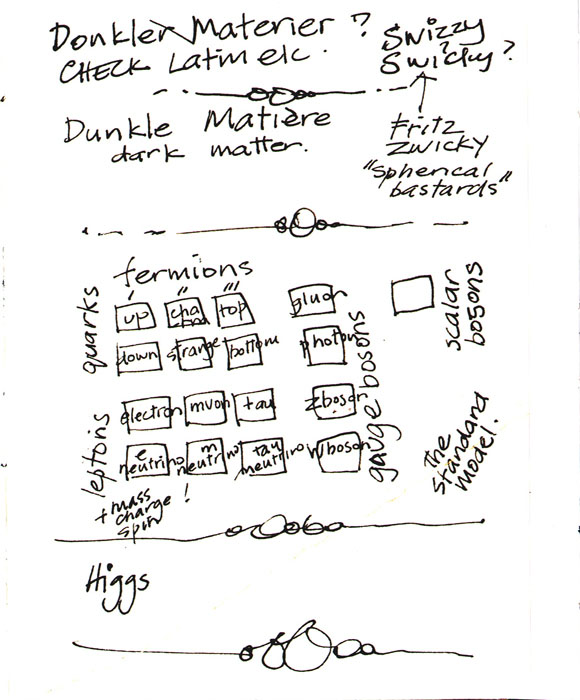 Donkler Materier ?
CHECK Latin etc.
Swizzy
Swicky?
Dunkle Matière
dark matter.
Fritz
Zwicky
"spherical
bastards"
fermions
I II III
quarks
up charm top gluon
down strange bottom photon
leptons
electron muon tau z boson
e neutrino m neutrino tau neutrino w boson
gauge bosons
scalar bosons
The standard model.
+ mass
charge
spin !
Higgs